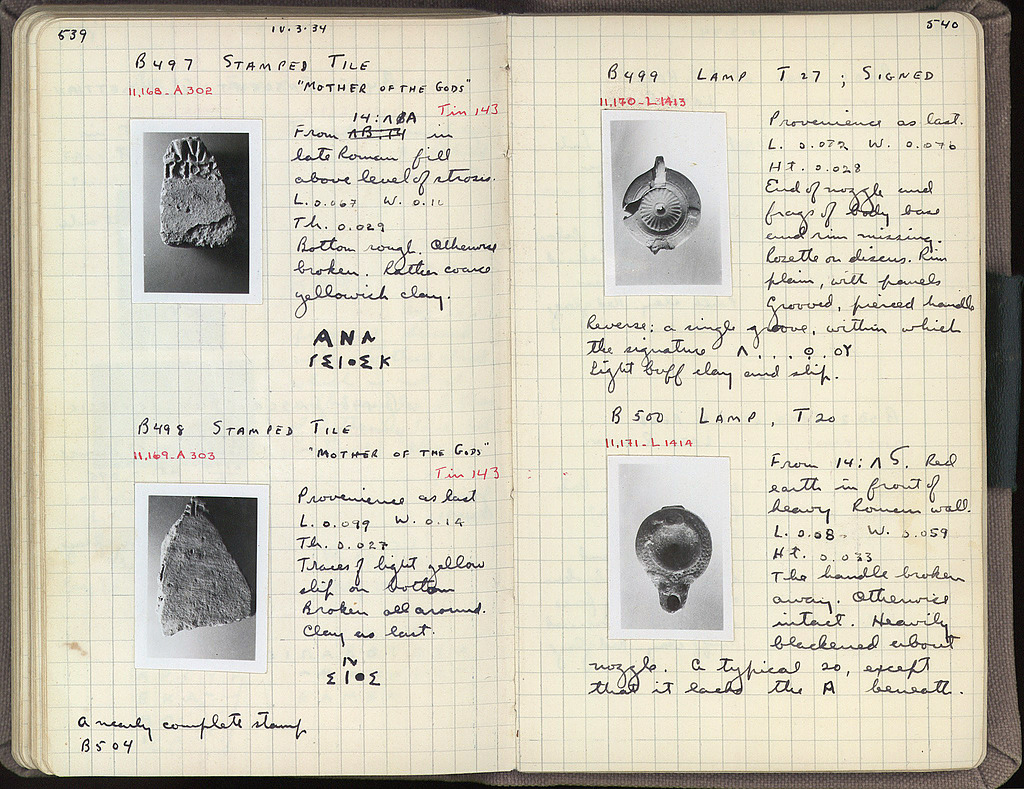 539
IV.3.34
B497 STAMPED TILE
"MOTHER OF THE GODS"
II,168-A302
Tin 143
14:ΛΒΑ
From ΛΒ:14 in
late Roman fill
above level of strosis.
L. 0.067 W. 0.11
Th. 0.029
Bottom rough. Otherwise
broken. Rather coarse
yellowish clay.
ΑΝΛ
ΓΣΙΟΣΚ
B498 STAMPED TILE
II,169-A303
"MOTHER OF THE GODS"
Tin 143
Provenience as last
L. 0.099 W. 0.14
Th. 0.027
Traces of light yellow
slip on bottom
Broken all around.
Clay as last.
Ν
ΣΙΟΣ
A nearly complete stamp
B504
540
B499 LAMP T27; SIGNED
II,170-L1413
Provenience as last.
L. 0.072 W. 0.076
Ht. 0.028
End of nozzle and
frags of body base
and rim missing.
Rosette on discus. Rim
plain, with panels
Grooved, pierced handle
Reverse: a single groove, within which
the signature Λ . . . Ο . ΟΥ
Light buff clay and slip.
B500 LAMP, T20
II,171-L1414
From 14:ΛS. Red
earth in front of
heavy Roman wall.
L. 0.08 W. 0.059
Ht. 0.033
The handle broken
away. Otherwise
intact. Heavily
blackened about
nozzle. A typical 20, except
that it lacks the A beneath.